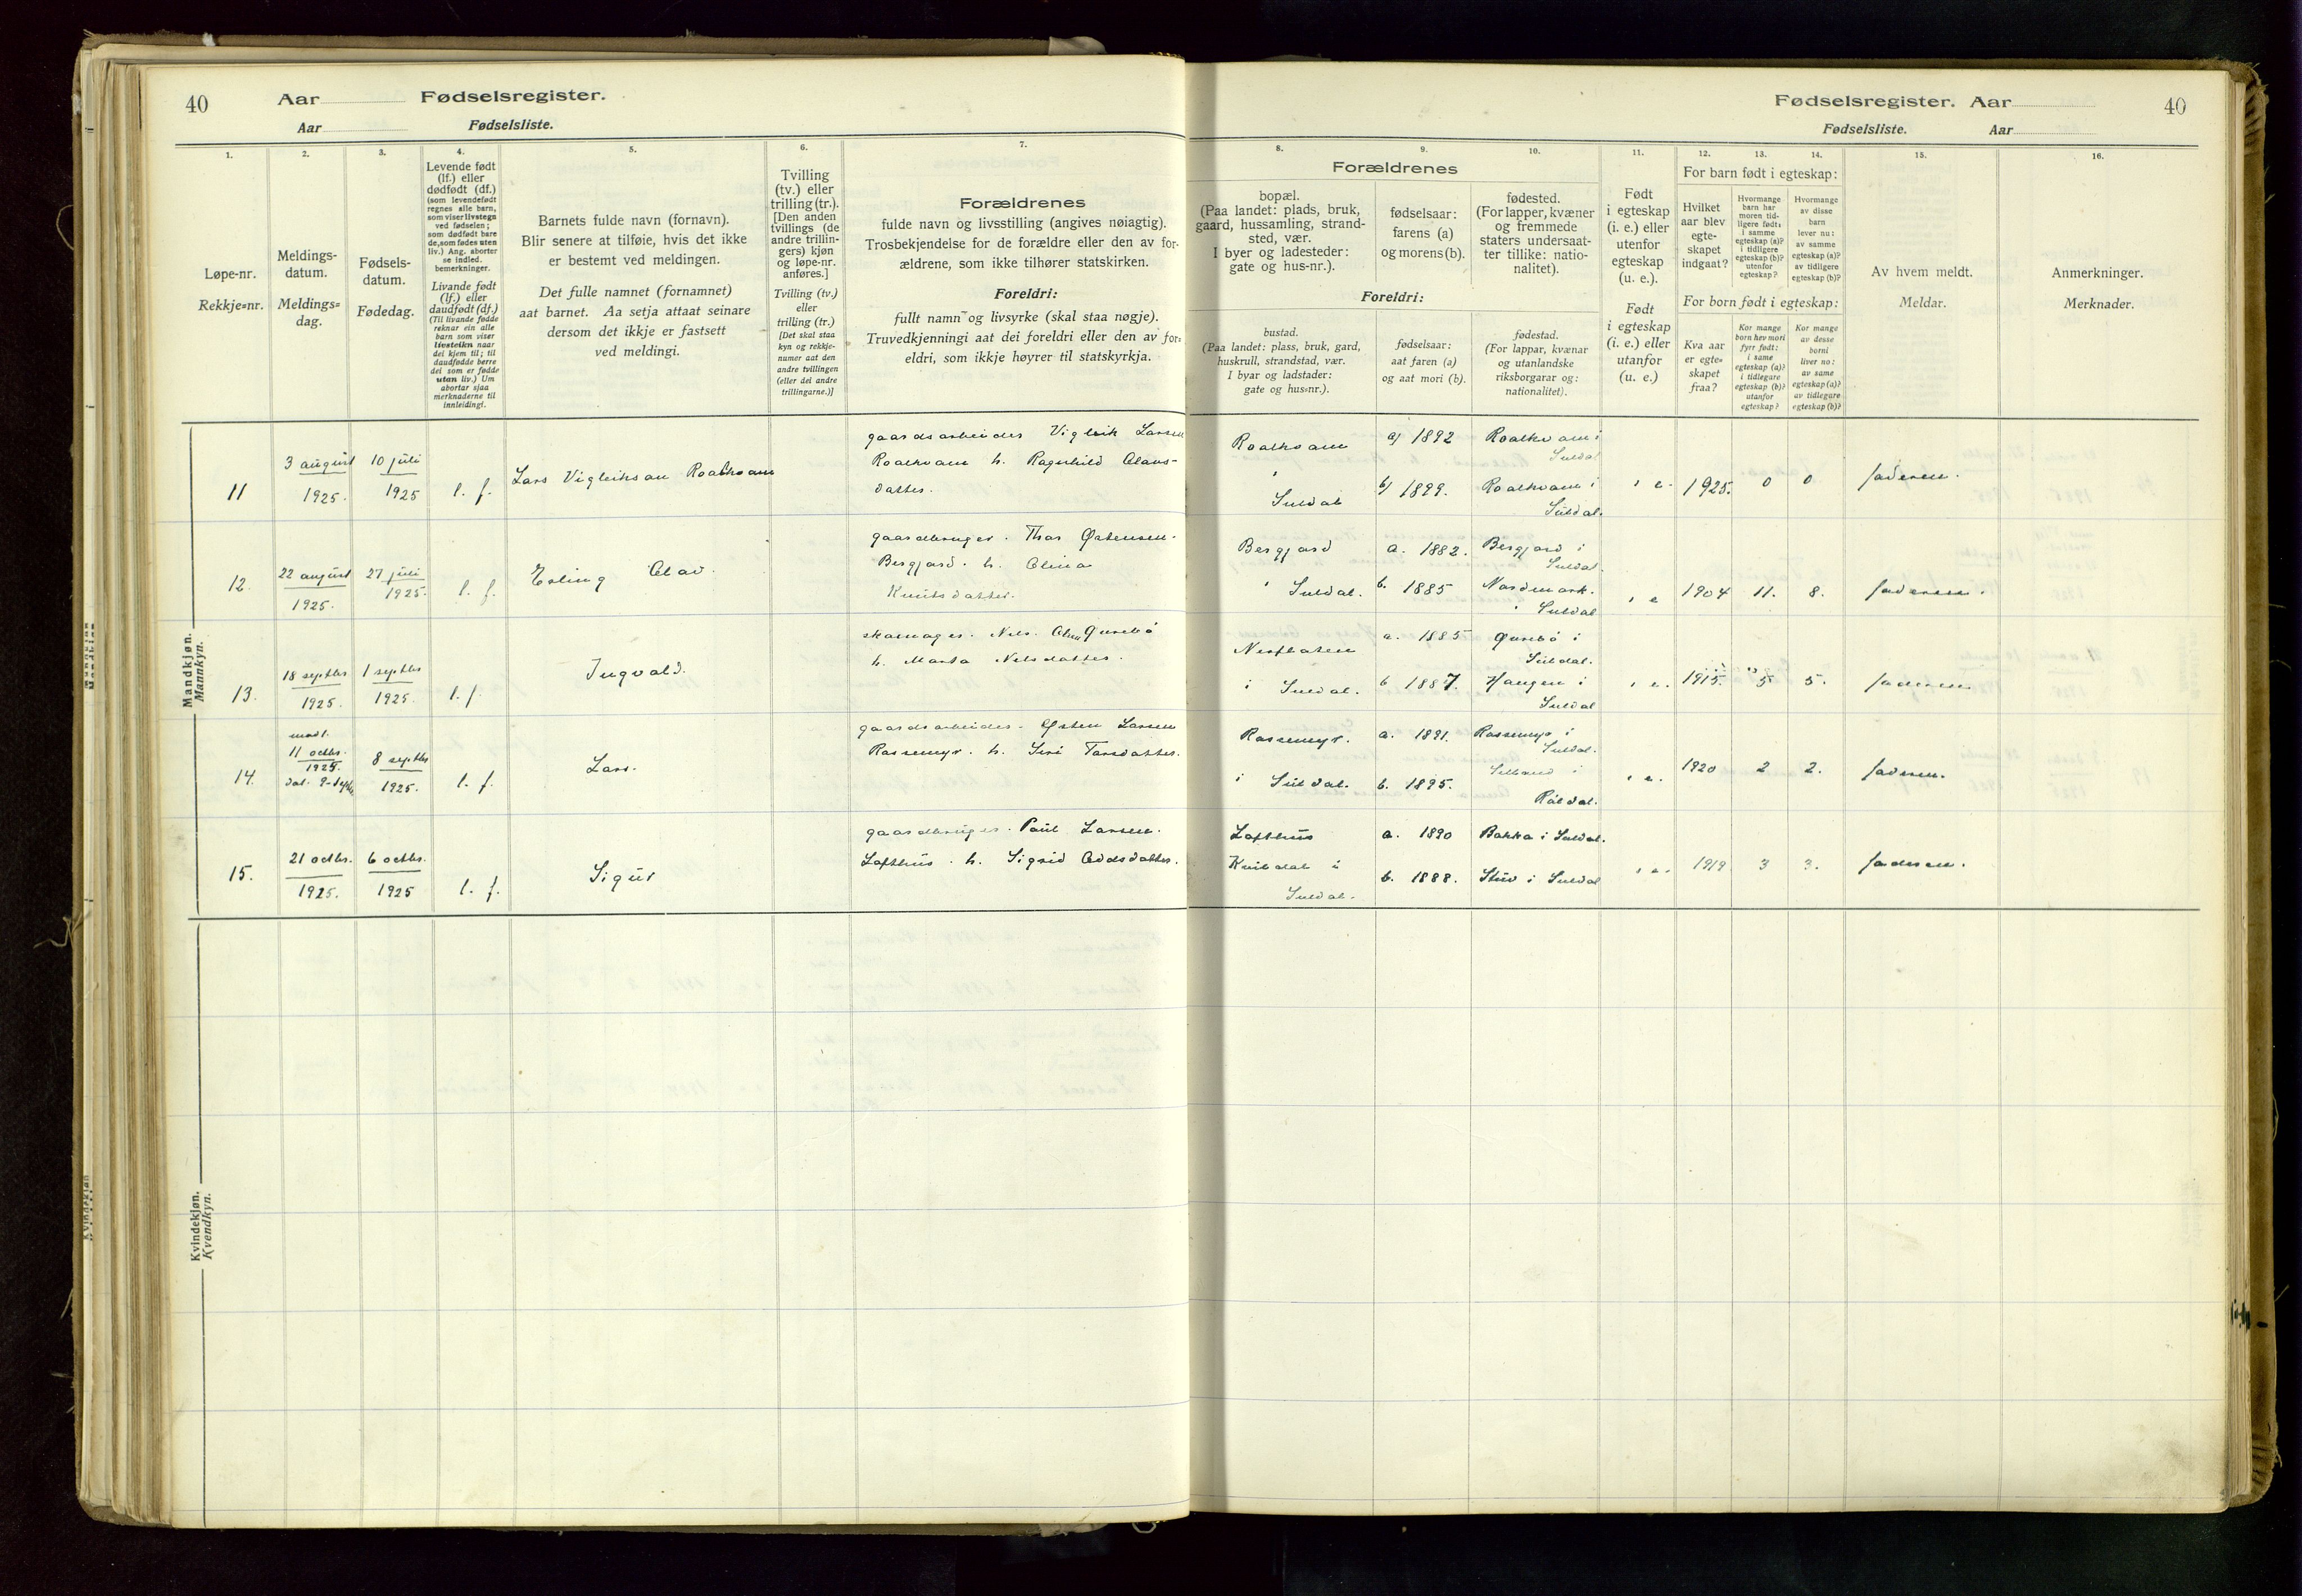 40
Aar
Fødselsregister.
Aar
Fødselsliste.
Fødselsregister. Aar
40
Fødselsliste.
Aar
1.
2.
3.
4.
5.
6.
7.
8.
9.
10.
11.
12.
13.
14.
15.
16.
Løpe-nr.
Rekkje=nr.
Meldings-
datum.
Meldings=
dag.
Fødsels-
datum.
Fødedag.
Levende født
(lf.) eller
dødfødt (df.)
(som levendefødt
regnes alle barn,
som viser livstegn
ved fødselen;
som dødfødt bare
de, som fødes uten
liv.) Ang. aborter
se indled.
bemerkninger.
Livande født
(lf.) eller
daudfødt (df.)
(Til livande fødde
reknar ein alle
barn som viser
livsteikn naar
dei kjem til; til
daudfødde berre
dei som er fødde
utan liv.) Um
abortar sjaa
merknaderne til
innleidingi.
Barnets fulde navn (fornavn).
Blir senere at tilføie, hvis det ikke
er bestemt ved meldingen.
Det fulle namnet (fornamnet)
aat barnet. Aa setja attaat seinare
dersom det ikkje er fastsett
ved meldingi.
Tvilling
(tv.) eller
trilling (tr.).
[Den anden
tvillings (de
andre trillin-
gers) kjøn
og løpe-nr.
anføres.]
Tvilling (tv.)
eller
trilling (tr.)
[Det skal staa
kyn og rekkje-
numer aat den
andre tvillingen
(eller dei andre
trillingarne.)]
Forældrenes
fulde navn og livsstilling (angives nøiagtig).
Trosbekjendelse for de forældre eller den av for-
ældrene, som ikke tilhører statskirken.
Foreldri:
fullt namn og livsyrke (skal staa nøgje).
Truvedkjenningi aat dei foreldri eller den av for-
eldri, som ikkje høyrer til statskyrkja.
Forældrenes
bopæl.
(Paa landet: plads, bruk,
gaard, hussamling, strand-
sted, vær.
I byer og ladesteder:
gate og hus-nr.).
fødselsaar:
farens (a)
og morens (b).
fødested.
(For lapper, kvæner
og fremmede
staters undersaat-
ter tillike: natio-
nalitet).
Foreldri:
bustad.
(Paa landet: plass, bruk, gard,
huskrull, strandstad, vær.
I byar og ladstader:
gate og hus=nr.).
fødselsaar:
aat faren (a)
og aat mori (b).
fødestad.
(For lappar, kvænar
og utanlandske
riksborgarar og:
nationalitet).
Født
i egteskap
(i. e.) eller
utenfor
egteskap
(u. e.).
Født
i egteskap
(i. e.) eller
utanfor
(u. e.)
For barn født i egteskap:
Hvilket
aar blev
egte-
skapet
indgaat?
Hvormange
barn har
moren tid-
ligere født:
i samme
egteskap (a)?
i tidligere
egteskap (b)?
utenfor
egteskap?
Hvormange
av disse
barn
lever nu:
av samme
egteskap (a)?
av tidligere
egteskap (b)?
For born født i egteskap:
Kva aar
er egte=
skapet
fraa?
Kor mange
born hev mori
fyrr født:
i same
egteskap (a)?
i tidlegare
egteskap (b)?
utanfor
egteskap?
Kor mange
av desse
borni
liver no:
av same
egteskap (a)?
av tidlegare
egteskap (b)?
Av hvem meldt.
Meldar.
Anmerkninger.
Merknader.
Mandkjøn.
Mannkyn.
11
3 august
1925.
10 juli
1925
l. f.
Lars Vigleiksan Roalkvam
gaardsarbeider Vigleik Larsen
Roalkvam h. Ragnhild Olavs-
datter.
Roalkvam
i
Suldal
a) 1892
b) 1899.
Roalkvam i
Suldal
Roalkvam i
Suldal.
i e.
1925.
0
0
faderen.
12.
22 august
1925.
27 juli
1925.
l. f.
Erling Olav.
gaardbruger. Thor Østensen.
Bergjord. h. Olina
Knutsdatter.
Bergjord
i Suldal.
a. 1882.
b. 1885
Bergjord i
Suldal.
Nordmork.
i Suldal
i e
1904
11.
8.
faderen.
13.
18 septbr
1925.
1 septbr
1925.
l. f
Ingvald.
skomager. Nils. Olsen Qurebø
h. Marta Nilsdatter.
Nesflaten
i Suldal.
a. 1885
b 1887.
Qurebø i
Suldal.
Haugen i
Suldal
i e.
1915.
5
5.
faderen
14.
11 octbr.
1925.
8 septbr
1925.
l. f.
Lars.
gaardsarbeider. Østen Larsen
Rassemyr. h. Siri Torsdatter.
Rassemyr.
i Suldal.
a. 1891.
b. 1895.
Rassemyr i
Suldal.
Røldal.
i e.
1920
2
2.
faderen.
15.
21 octbr.
1925.
6 octbr.
1925
l. f.
Sigur
gaardbruger. Paul Larsen.
Lofthus. h. Sigrid Oddsdatter.
Lofthus
Kvildal i
Suldal.
a. 1890
b. 1888.
Bakka i Suldal.
Stuv i Suldal
i e.
1919.
3
3.
faderen.
Kvindekjøn.
Kvendkyn.